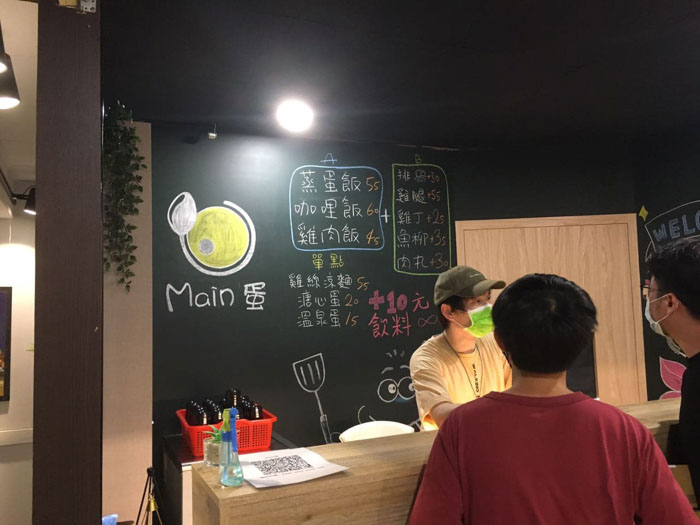 Main蛋
A
蒸蛋飯 55
咖哩飯 60
雞肉飯 45
+
B
排骨+30
雞腿+55
雞丁+25
魚柳+35
肉丸+30
單點
雞絲涼麵 55
溏心蛋 20
溫泉蛋 15
+10元
飲料 ∞
WELC